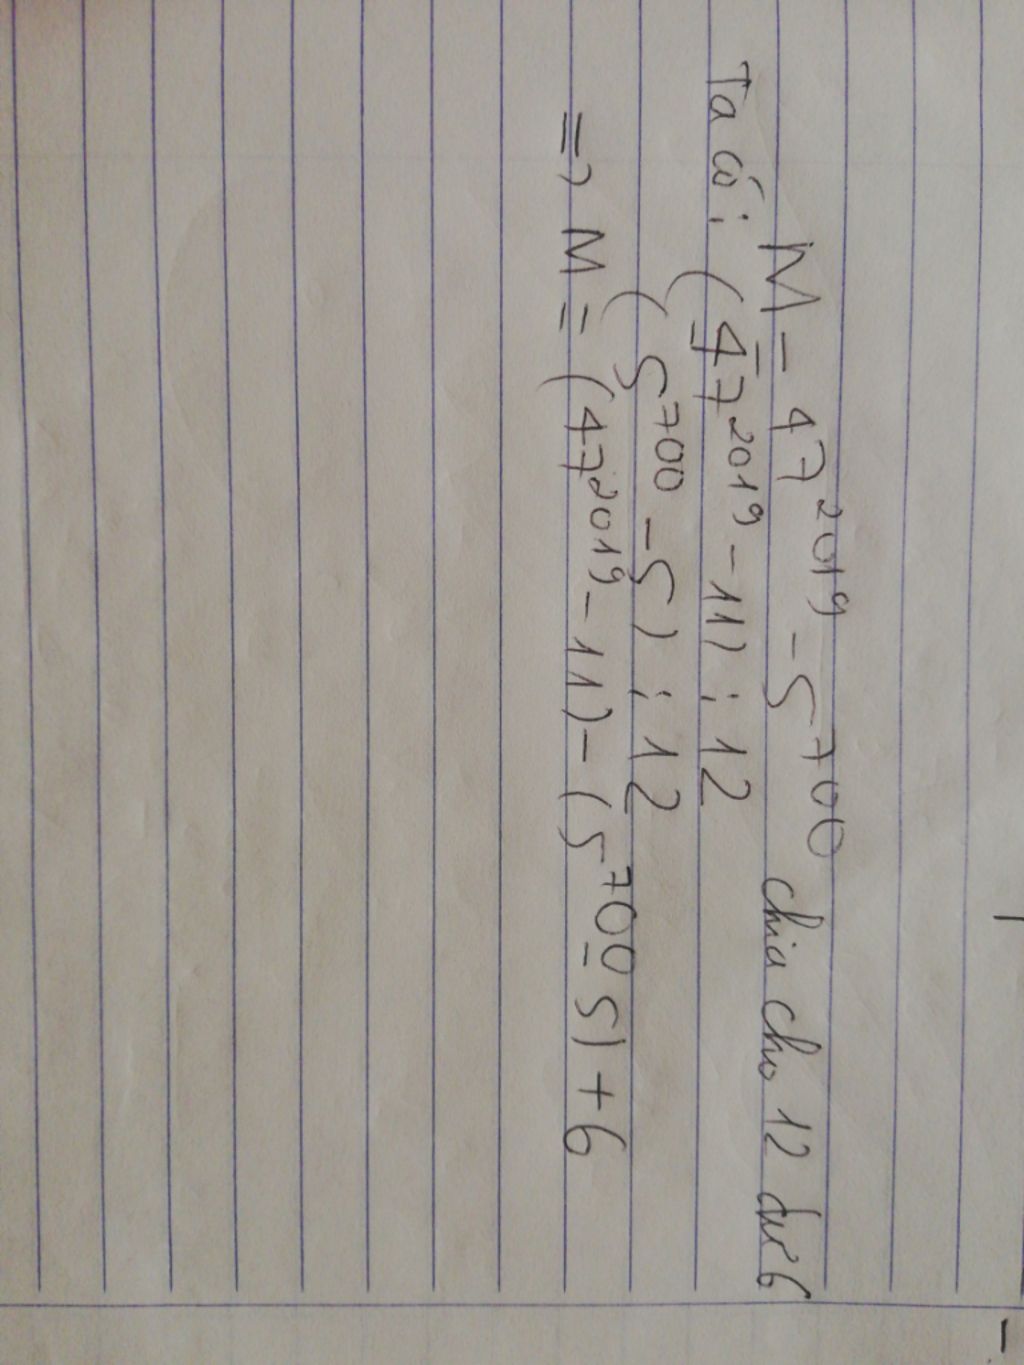 M = 47²⁰¹⁹ - 5⁷⁰⁰ chia cho 12 dư 6
Ta có: (47²⁰¹⁹ - 11) : 12
(5⁷⁰⁰ - 5) : 12
=> M = (47²⁰¹⁹ - 11) - (5⁷⁰⁰ - 5) + 6